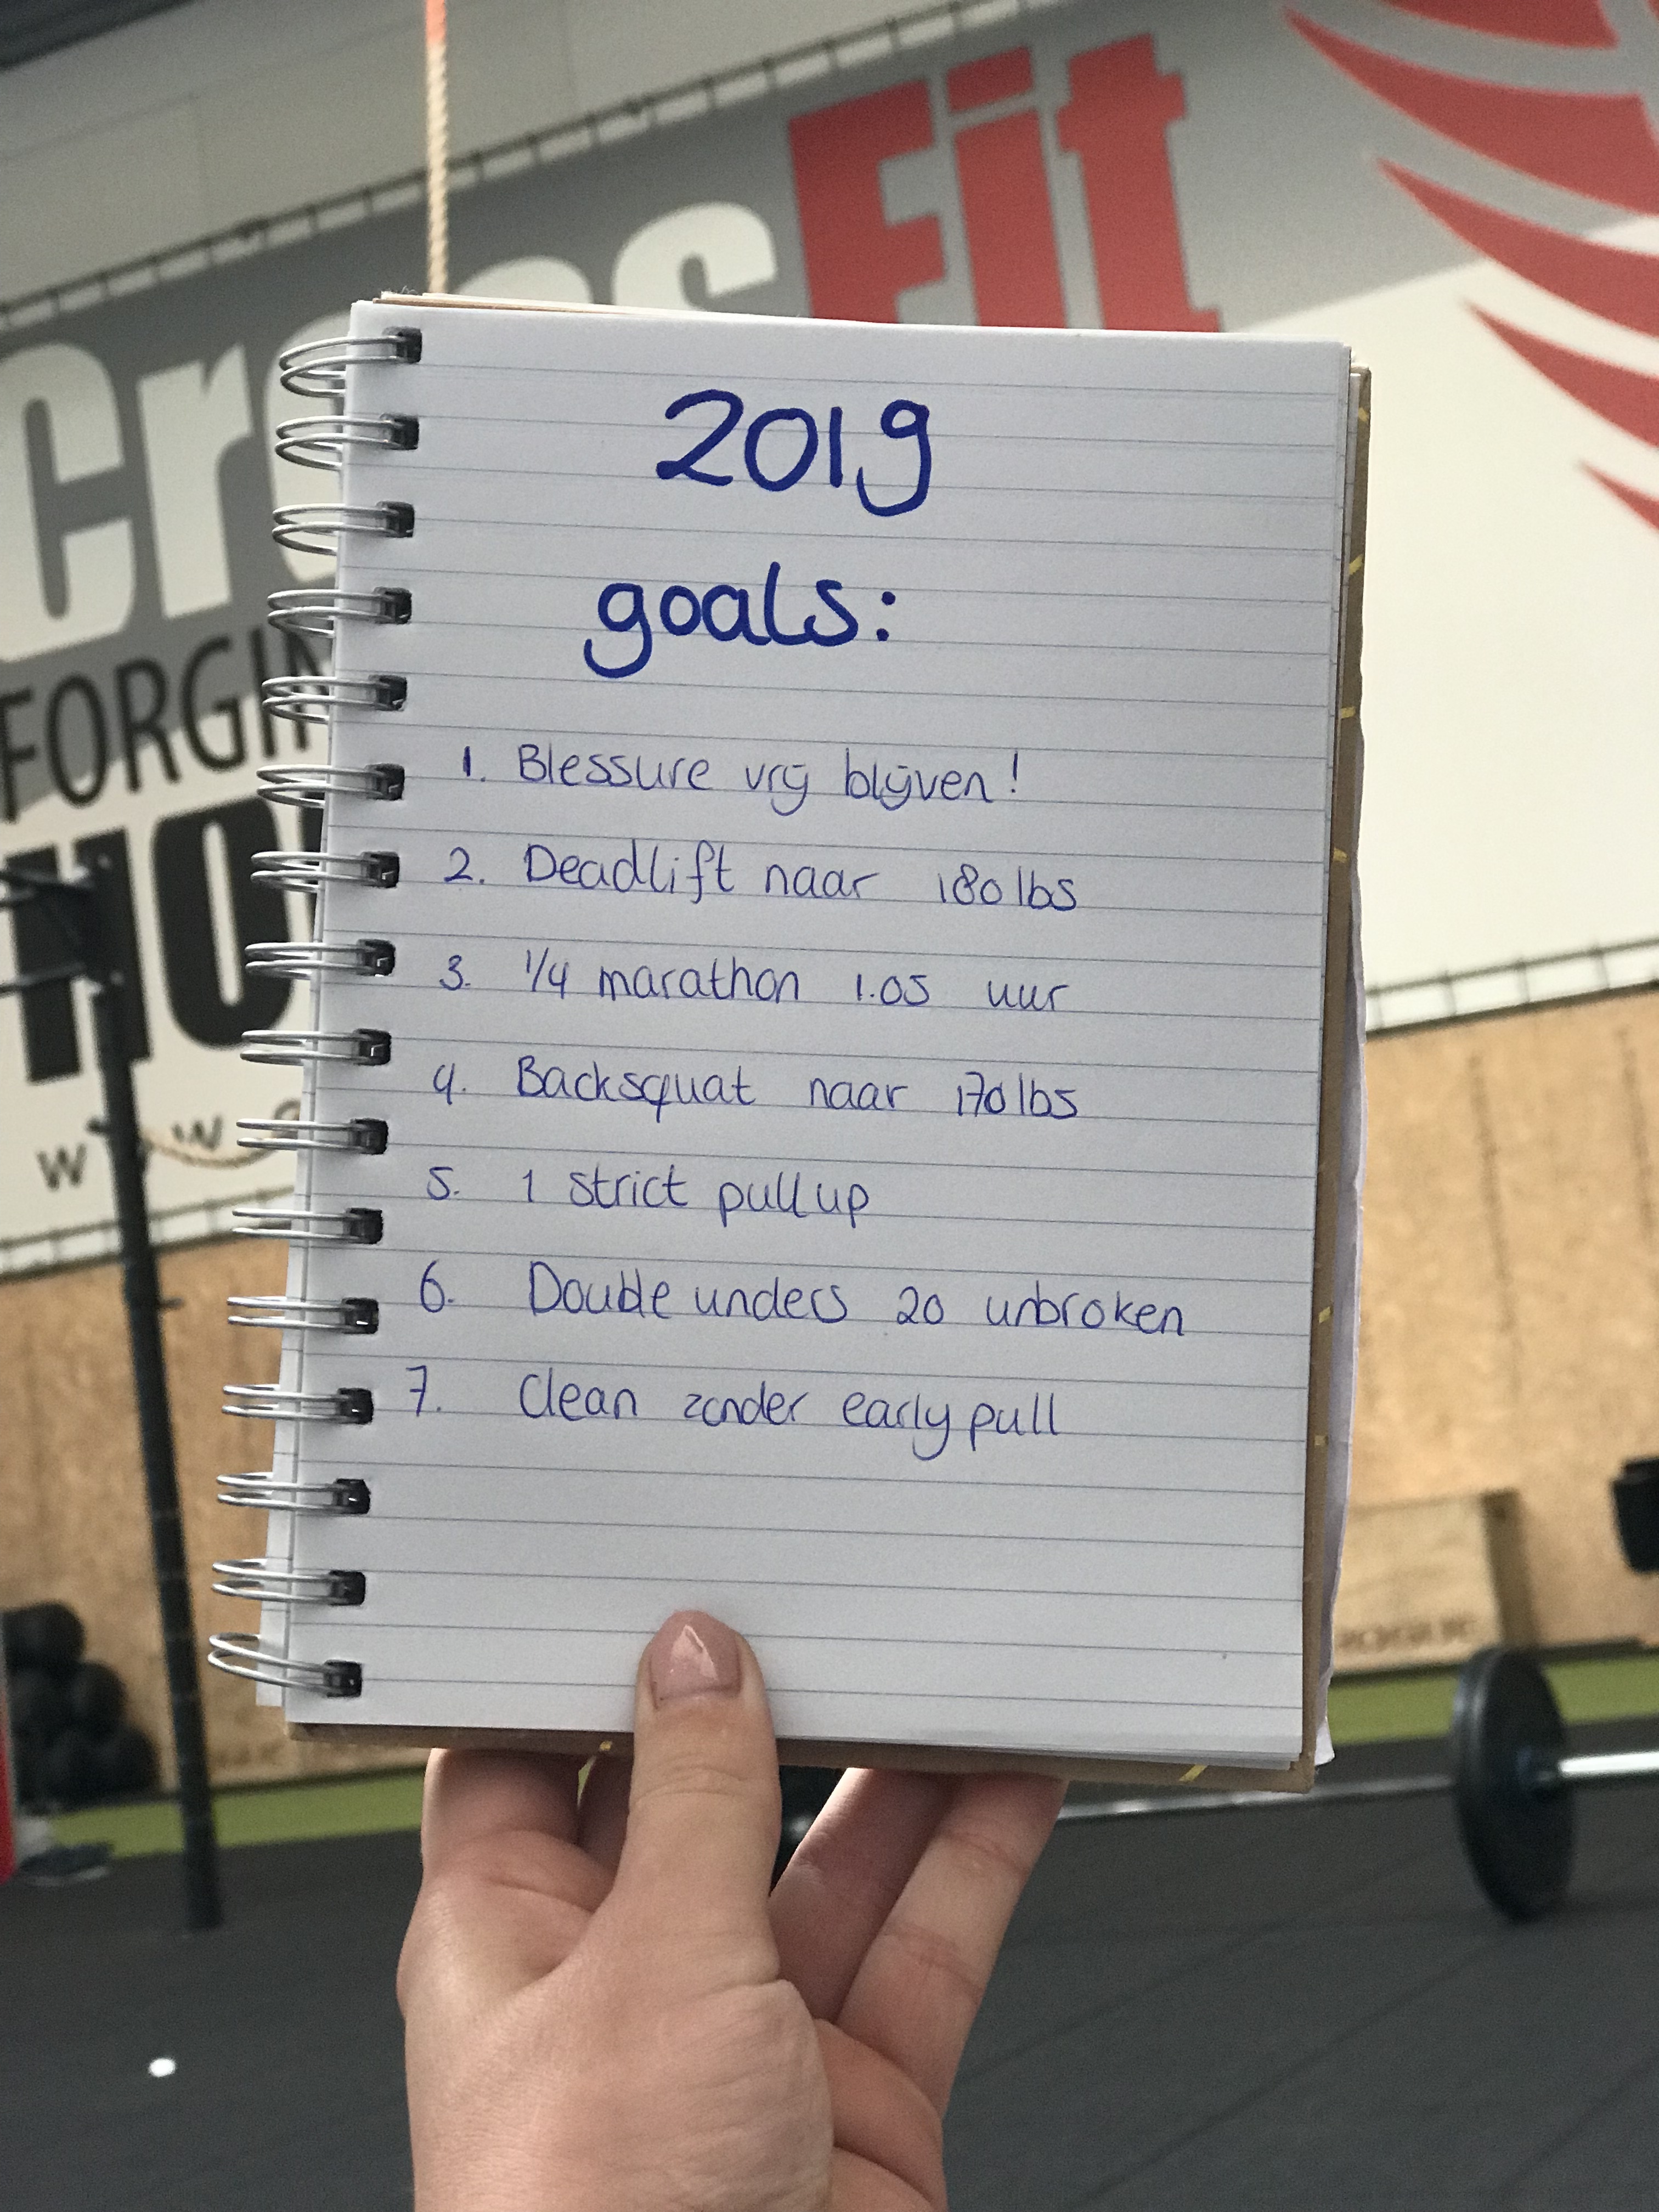 CrossFit
FORGIN
HO
w w
2019
goals:
1. Blessure vrij blijven!
2. Deadlift naar 180 lbs
3. 1/4 marathon 1.05 uur
4. Backsquat naar 170 lbs
5. 1 strict pull up
6. Double unders 20 unbroken
7. Clean zonder early pull
ROGUE